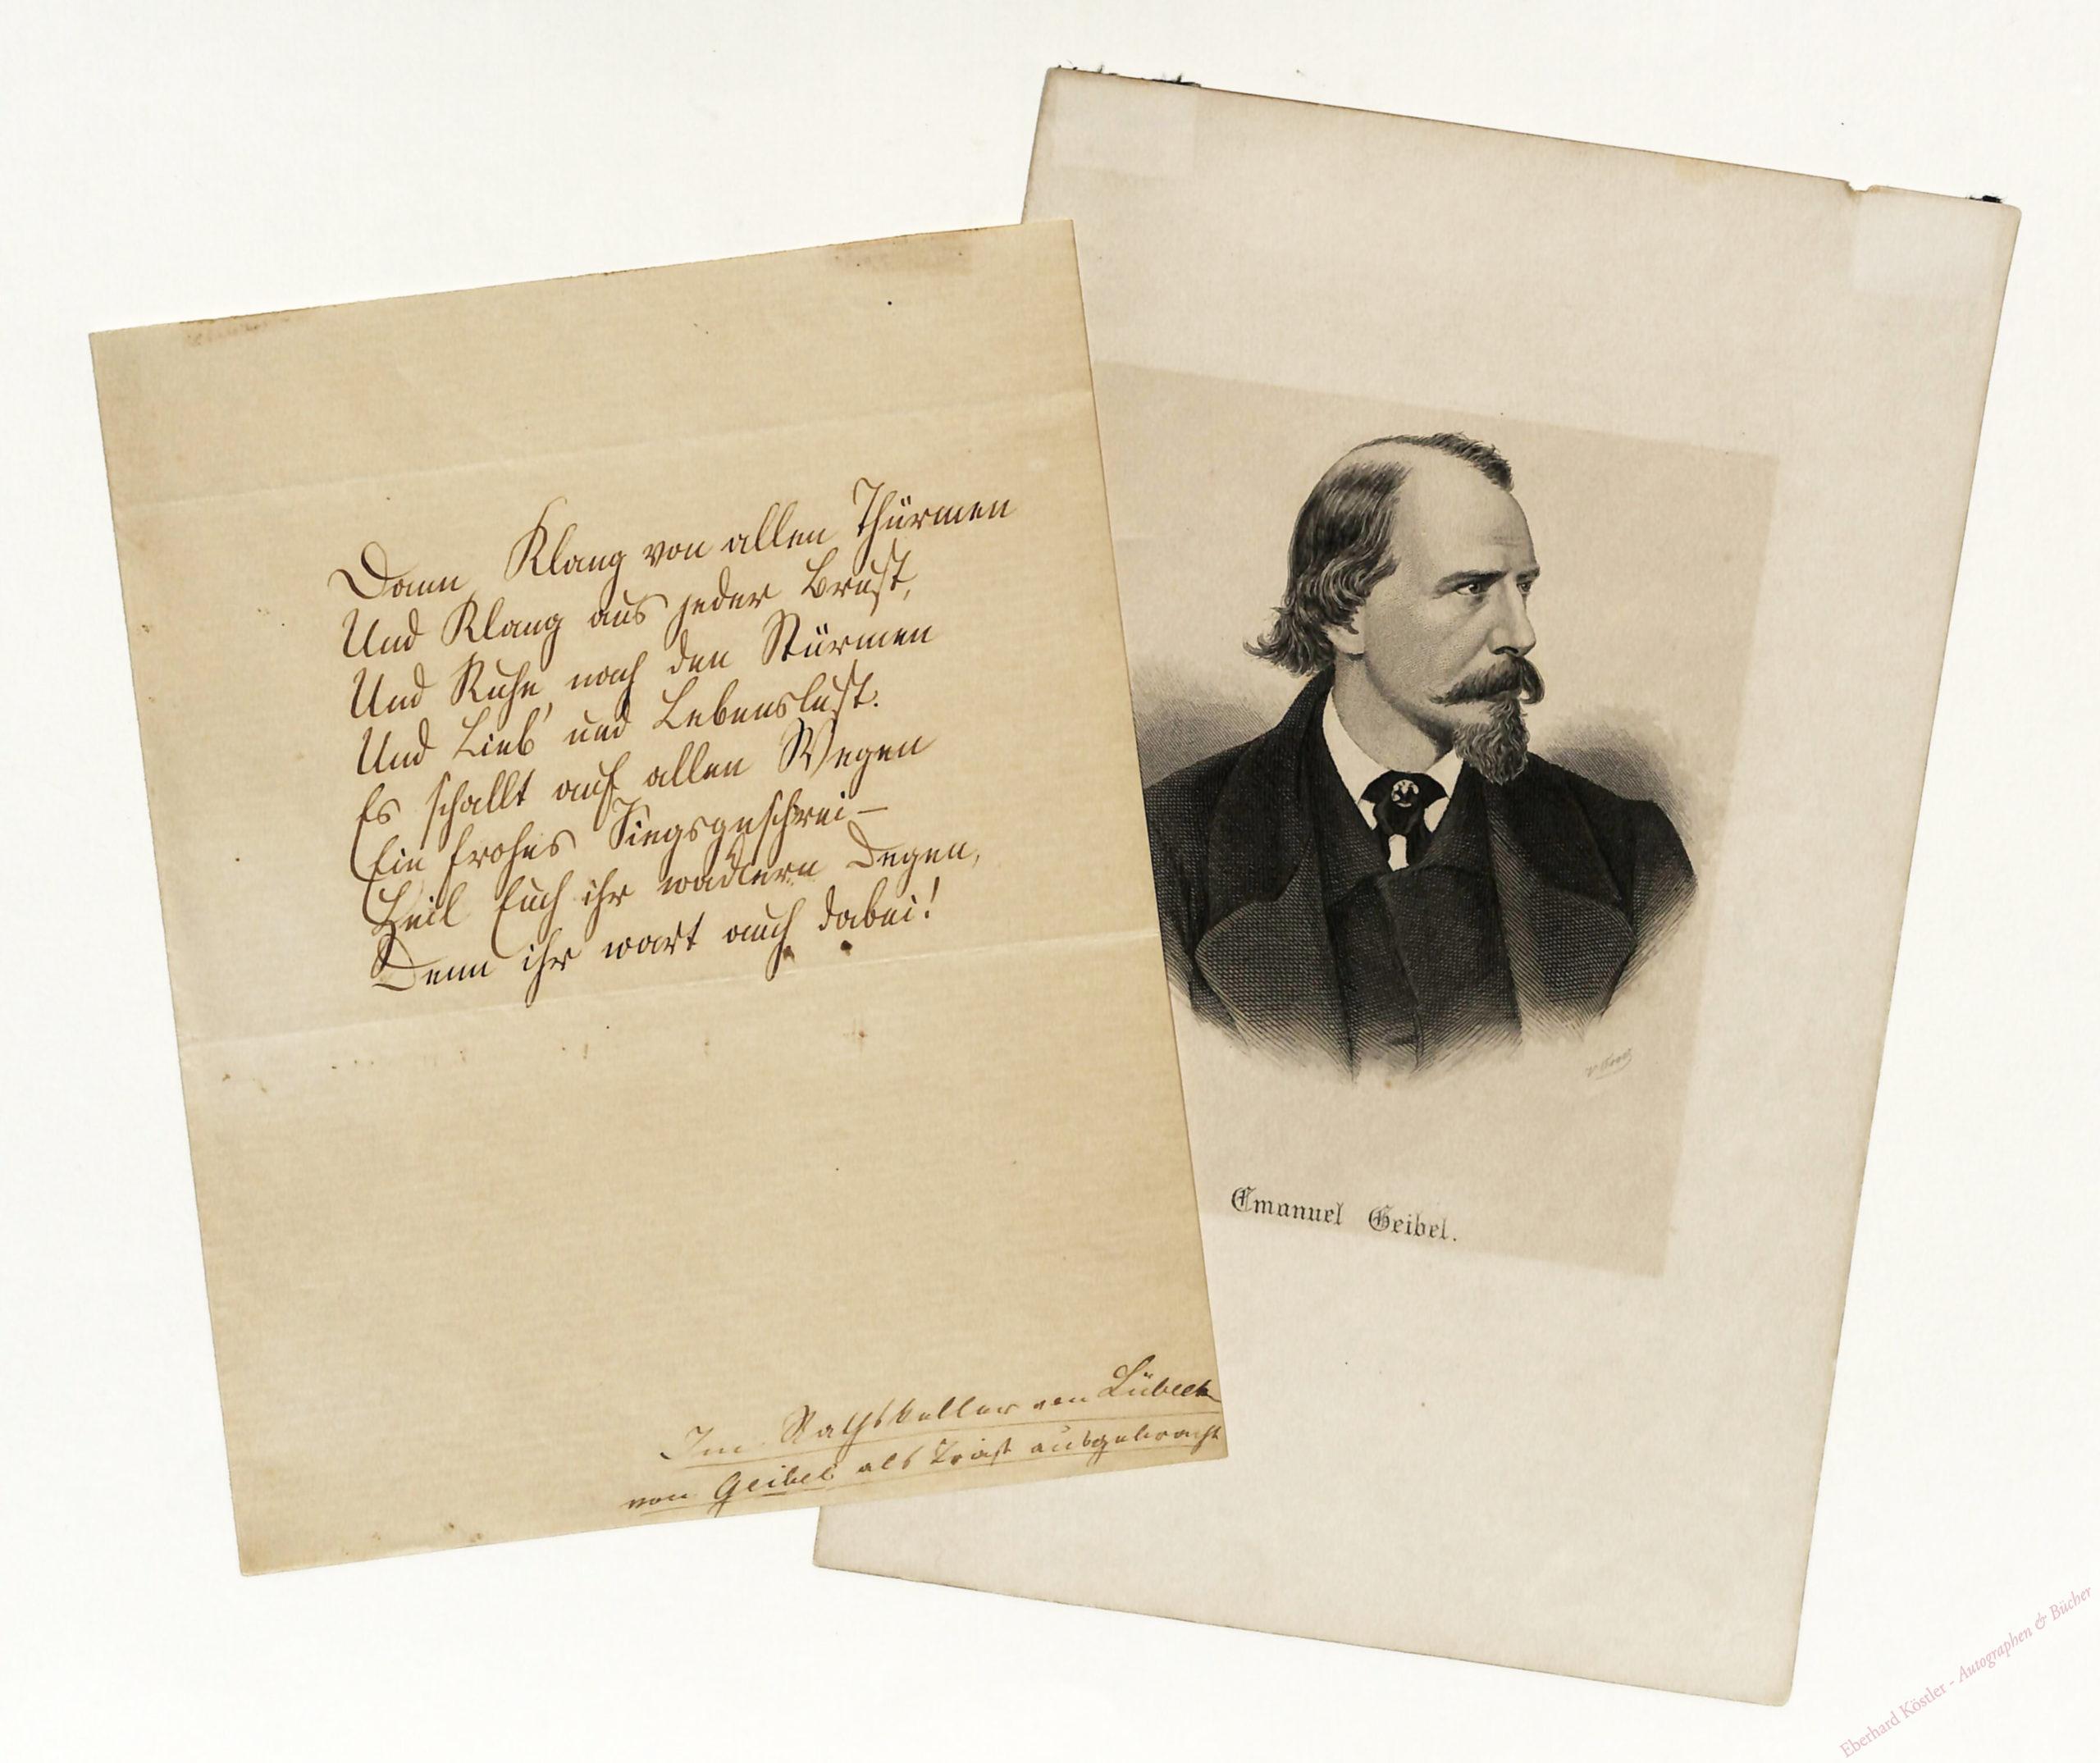 Dann Klang von allen Thürmen
Und Klang aus jeder Brust,
Und Ruhe nach den Stürmen
Und Lieb' und Lebenslust.
Es schallt auf allen Wegen
Ein frohes Siegsgeschrei –
Heil Euch ihr wackern Degen,
Denn ihr wart auch dabei!
Im Rathskeller von Lübeck
von Geibel als Toast ausgebracht
Emanuel Geibel.
Eberhard Köstler - Autographen & Bücher